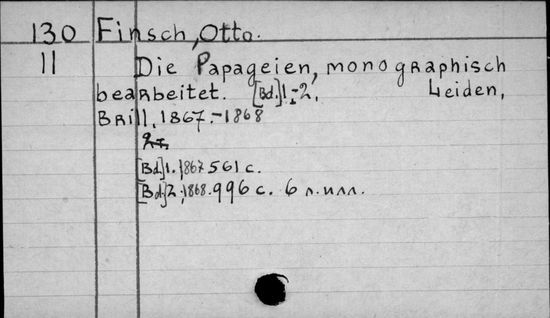 130 Finsch, Otto.
11 Die Papageien, monographisch
bearbeitet. [Bd.] 1.-2. Leiden,
Brill, 1867.-1868
[Bd.] 1. 1867 561 с.
[Bd.] 2. 1868. 996 с. 6 л. илл.